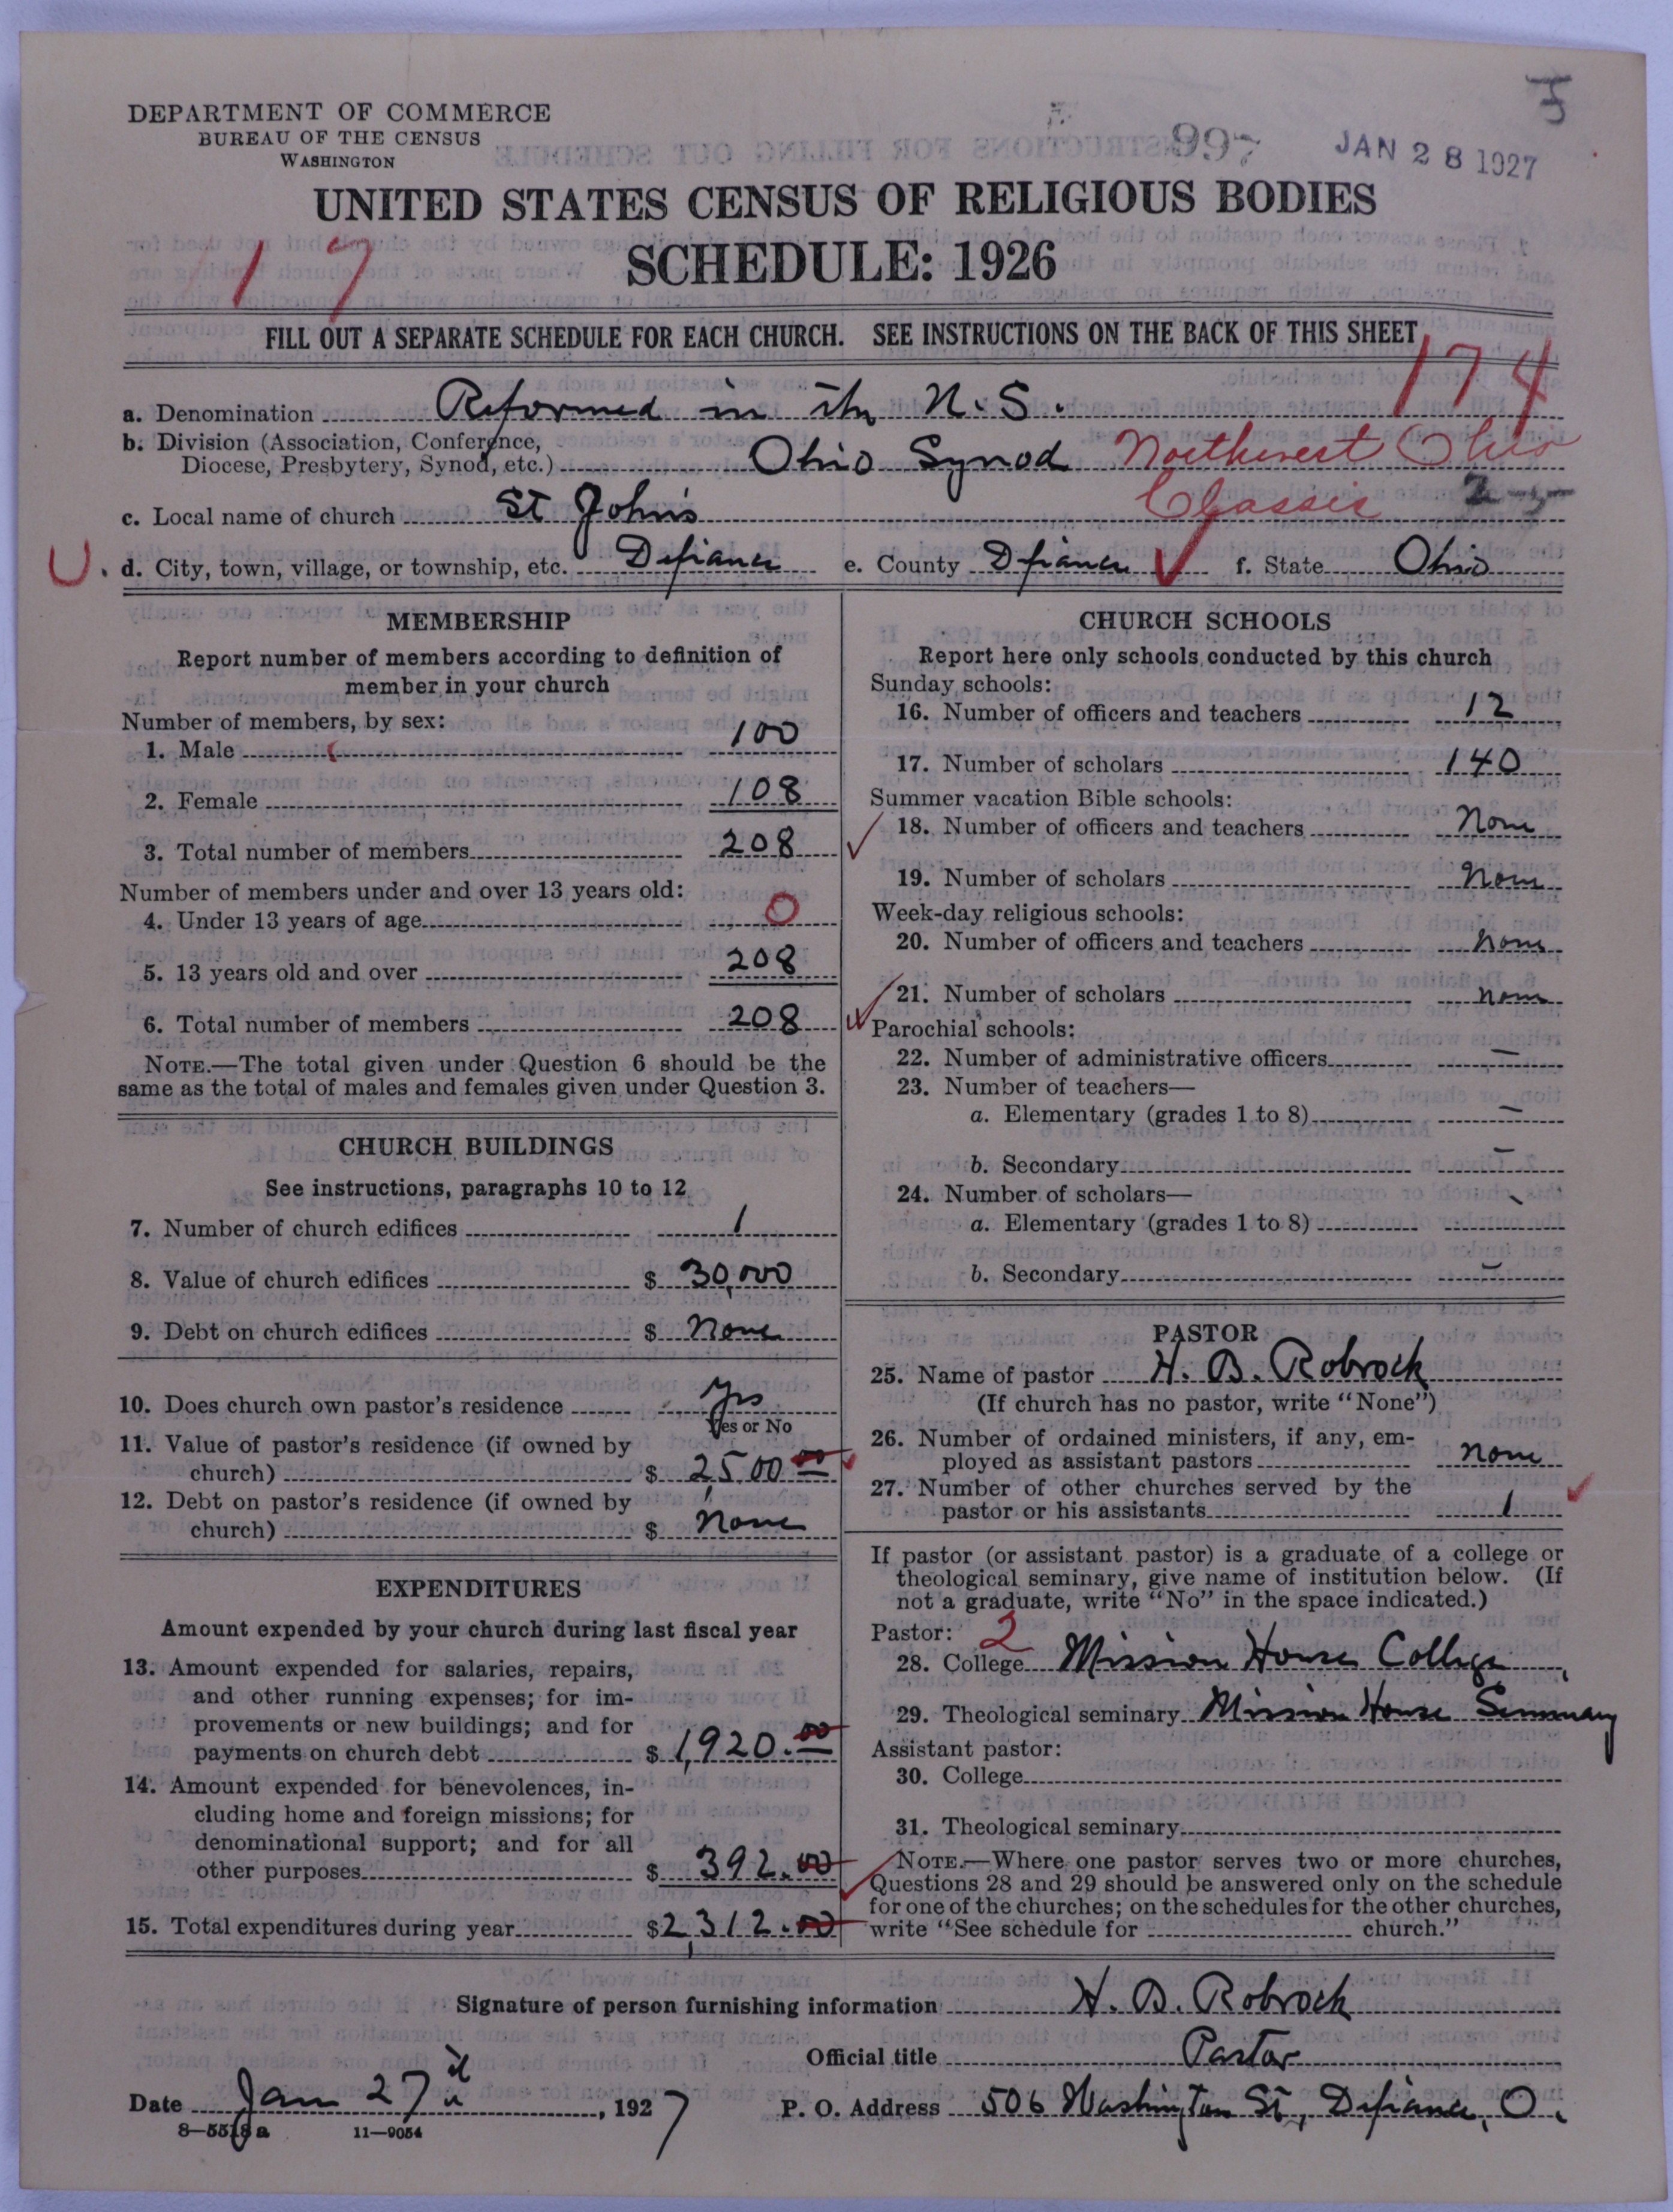 DEPARTMENT OF COMMERCE
BUREAU OF THE CENSUS
WASHINGTON
997
JAN 28 1927
UNITED STATES CENSUS OF RELIGIOUS BODIES
SCHEDULE: 1926
17
FILL OUT A SEPARATE SCHEDULE FOR EACH CHURCH. SEE INSTRUCTIONS ON THE BACK OF THIS SHEET
174
a. Denomination Reformed in the U.S.
b. Division (Association, Conference,
Diocese, Presbytery, Synod, etc.) Ohio Synod Northwest Ohio
Classis
c. Local name of church St John's
U. d. City, town, village, or township, etc. Defiance e. County Defiance f. State Ohio
MEMBERSHIP
Report number of members according to definition of
member in your church
Number of members, by sex:
1. Male 100
2. Female 108
3. Total number of members 208
Number of members under and over 13 years old:
4. Under 13 years of age 0
5. 13 years old and over 208
6. Total number of members 208
NOTE.—The total given under Question 6 should be the
same as the total of males and females given under Question 3.
CHURCH BUILDINGS
See instructions, paragraphs 10 to 12
7. Number of church edifices 1
8. Value of church edifices $ 30,000
9. Debt on church edifices $ None
10. Does church own pastor's residence Yes
Yes or No
11. Value of pastor's residence (if owned by
church) $ 2,500 00
12. Debt on pastor's residence (if owned by
church) $ None
EXPENDITURES
Amount expended by your church during last fiscal year
13. Amount expended for salaries, repairs,
and other running expenses; for im-
provements or new buildings; and for
payments on church debt $ 1,920.00
14. Amount expended for benevolences, in-
cluding home and foreign missions; for
denominational support; and for all
other purposes $ 392.00
15. Total expenditures during year $ 2,312.00
CHURCH SCHOOLS
Report here only schools conducted by this church
Sunday schools:
16. Number of officers and teachers 12
17. Number of scholars 140
Summer vacation Bible schools:
18. Number of officers and teachers None
19. Number of scholars None
Week-day religious schools:
20. Number of officers and teachers None
21. Number of scholars None
Parochial schools:
22. Number of administrative officers —
23. Number of teachers—
a. Elementary (grades 1 to 8) —
b. Secondary —
24. Number of scholars—
a. Elementary (grades 1 to 8)
b. Secondary —
PASTOR
25. Name of pastor H. B. Robrock
(If church has no pastor, write "None")
26. Number of ordained ministers, if any, em-
ployed as assistant pastors None
27. Number of other churches served by the
pastor or his assistants 1
If pastor (or assistant pastor) is a graduate of a college or
theological seminary, give name of institution below. (If
not a graduate, write "No" in the space indicated.)
Pastor: 2
28. College Mission House College
29. Theological seminary Mission House Seminary
Assistant pastor:
30. College
31. Theological seminary
NOTE.—Where one pastor serves two or more churches,
Questions 28 and 29 should be answered only on the schedule
for one of the churches; on the schedules for the other churches,
write "See schedule for church."
Signature of person furnishing information H. B. Robrock
Official title Pastor
Date Jan 27, 1927 P. O. Address 506 Washington St, Defiance, O.
8—5518a 11—9054